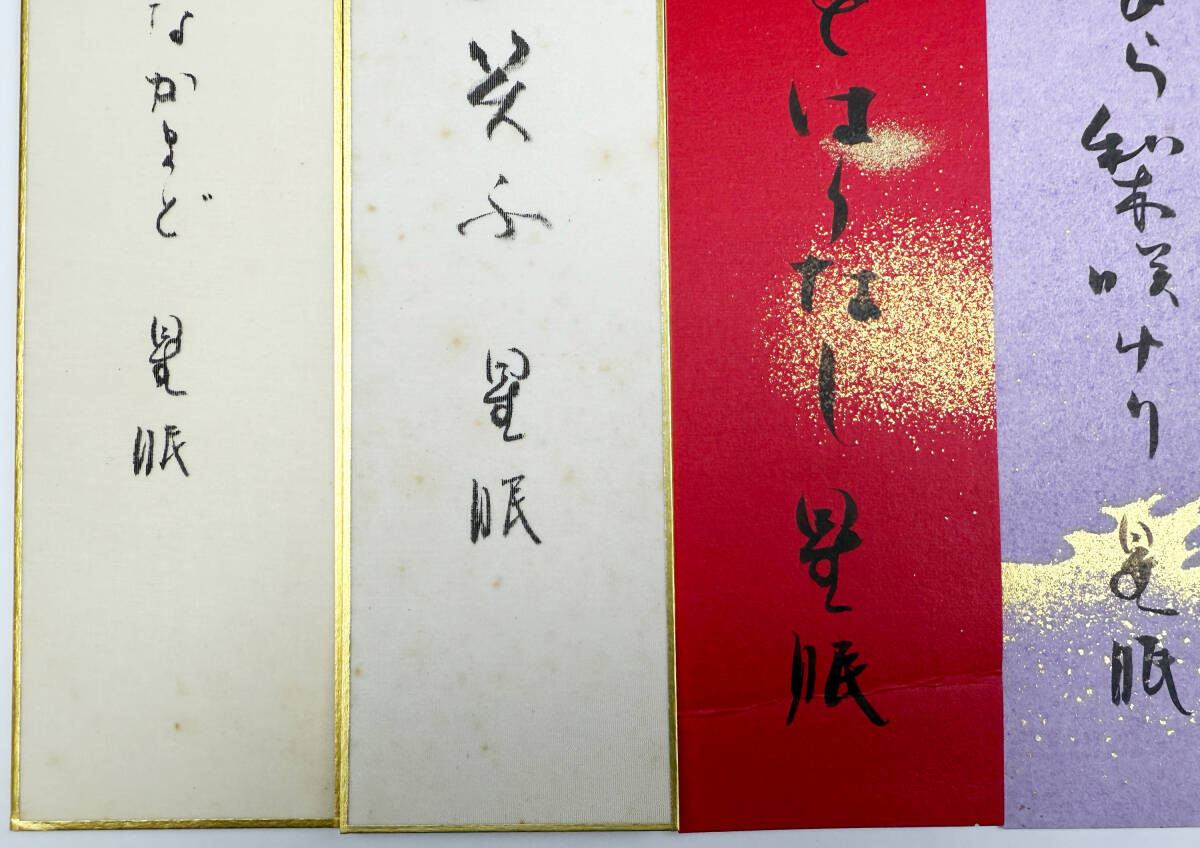 ら梨咲けり 星眠
とはうなし 星眠
笑ふ 星眠
なかまど 星眠